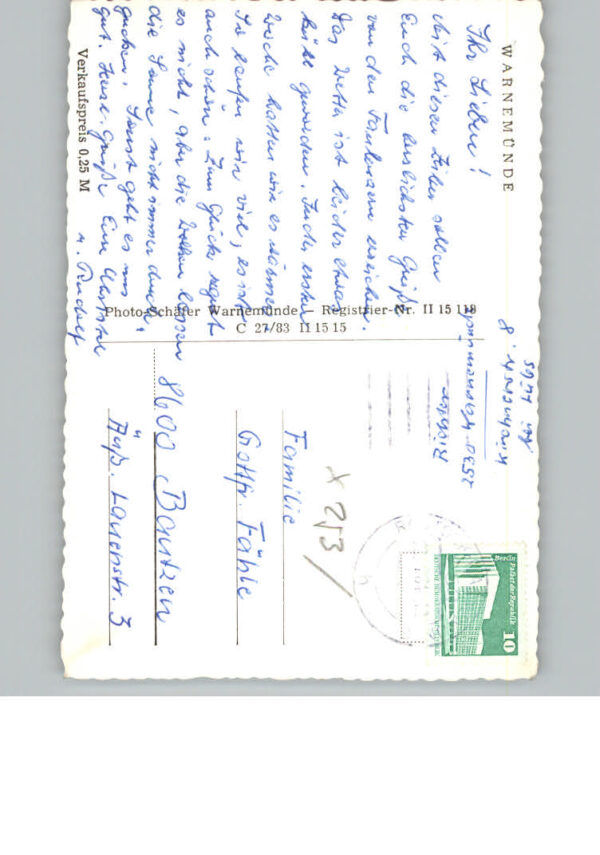 WARNEMÜNDE
Ihr Lieben!
Mit diesen Zeilen sollen
Euch die herzlichsten Grüße
von den Faulenzern erreichen.
Das Wetter ist leider etwas
kühl geworden. In der ersten
Woche hatten wir es wärmer.
So laufen wir viel, es ist
auch schön. Zum Glück regnet
es nicht, aber die Wolken lassen
die Sonne nicht immer durch
gucken. Sonst geht es uns
gut. Herzl. Grüße Eure
u. Rudolf
Verkaufspreis 0,25 M
Photo-Schäfer Warnemünde — Registrier-Nr. II 15 118
C 27/83 II 15 15
2530 Warnemünde
Kirchenstr. 8
x 253/
Familie
Gottfr. Fähle
8600 Bautzen
Äuß. Lauenstr. 3
Berlin
Palast der Republik
10